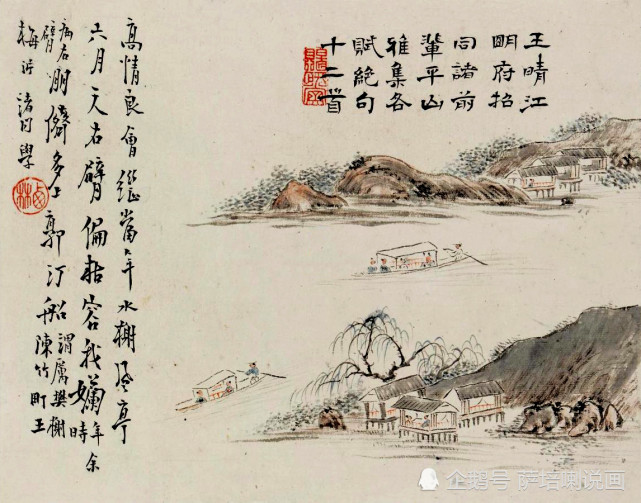 王晴江
明府招
同諸前
輩平山
雅集各
賦絕句
十二首
高情良會繼當年水榭風亭
六月天右臂偏枯容我嬾年余時
病右臂朋儕多上郭汀船謂厲樊榭陳竹町王
梅沜諸同學
企鹅号 萨培喇说画